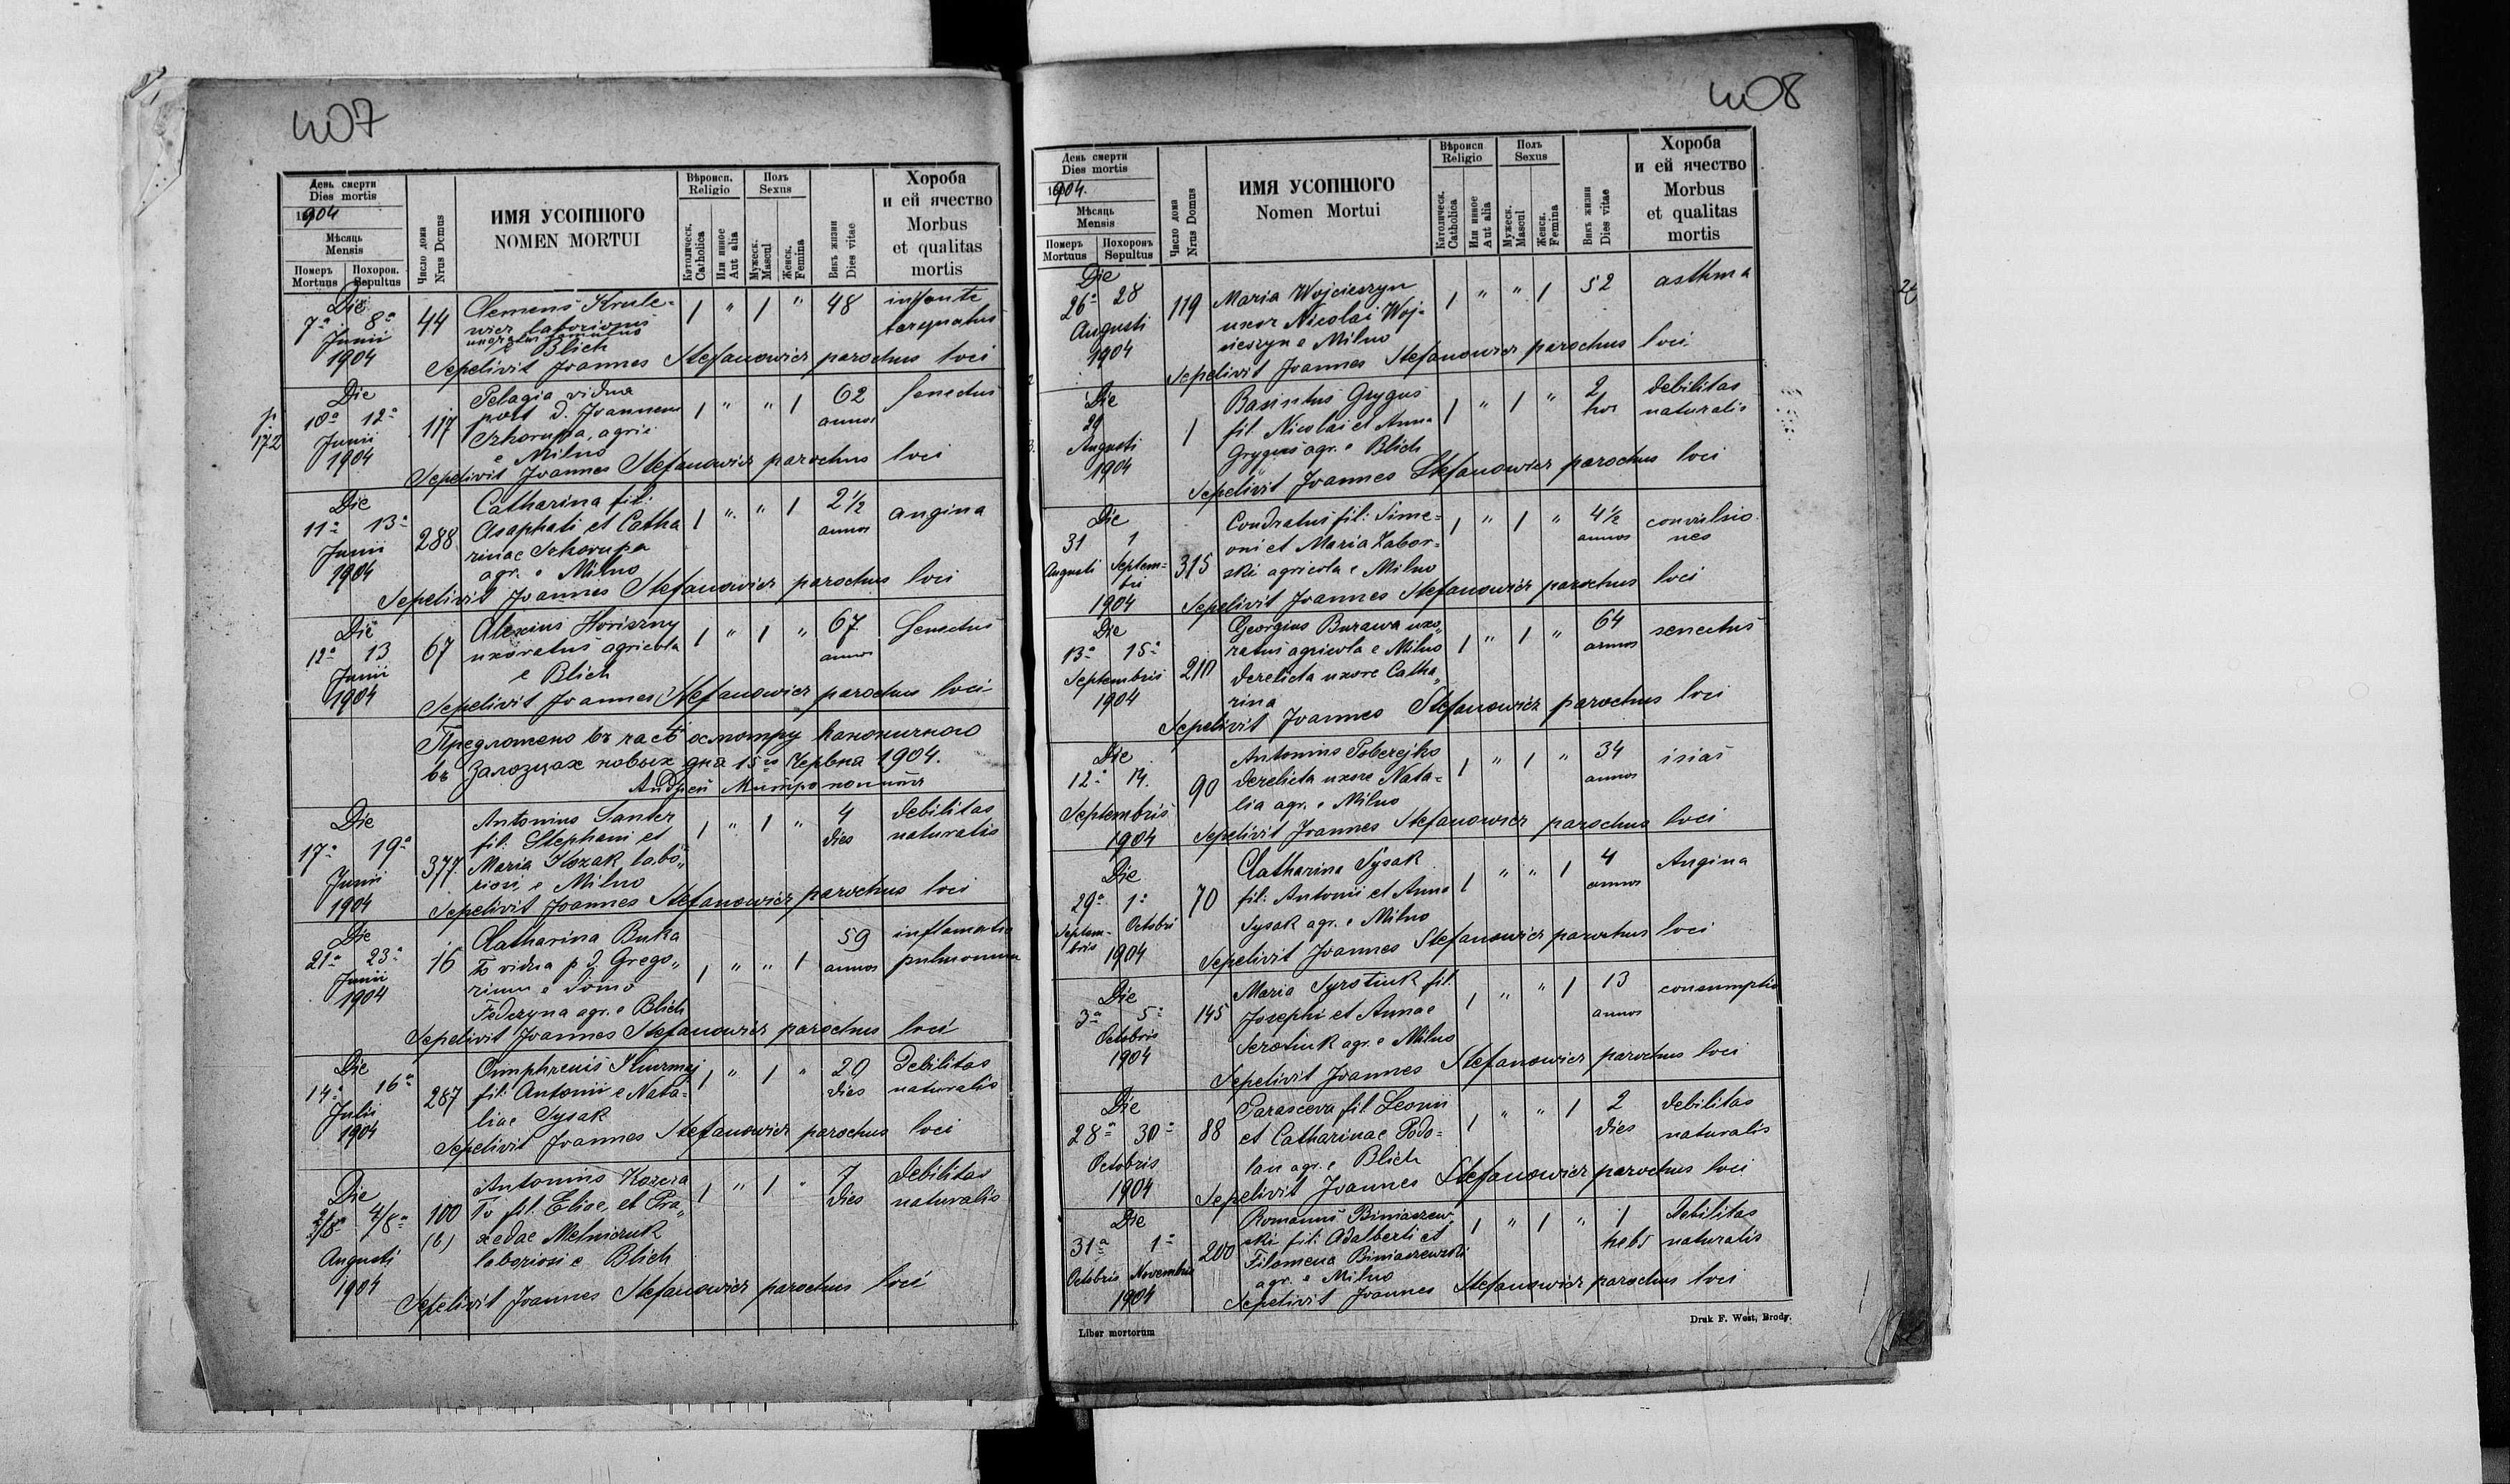 407
День смерти
Dies mortis
1904
Мѣсяць
Mensis
Померъ
Mortuus
Похорон.
Sepultus
Число дома
Nrus Domus
ИМЯ УСОПШОГО
NOMEN MORTUI
Вѣроисп.
Religio
Католическ.
Catholica
Или инное
Aut alia
Полъ
Sexus
Мужеск.
Mascul
Женск.
Femina
Викъ жизни
Dies vitae
Хороба
и ей ячество
Morbus
et qualitas
mortis
Die
7ª 8ª
Junii
1904
44
Clemens Krule=
wicz laboriosus
uxoratus famulus
e Blich
1 " 1 "
48
Sepelivit Joannes Stefanowicz parochus loci
p.
172
Die
10ª 12ª
Junii
1904
117
Pelagia vidua
post d. Joannem
Szkorupa, agric
e Milno
1 " " 1
62
annos
Senectus
Sepelivit Joannes Stefanowicz parochus loci
Die
11ª 13ª
Junii
1904
288
Catharina fil:
Asaphati et Catha
rinae Szkorupa
agr. e Milno
1 " " 1
2½
annos
angina
Sepelivit Joannes Stefanowicz parochus loci
Die
12ª 13
Junii
1904
67
Alexius Horiszny
uxoratus agricola
e Blich
1 " 1 "
67
annos
Senectus
Sepelivit Joannes Stefanowicz parochus loci
Предложено въ часѣ осмотру каноничного
въ Залозцах новых дня 15го Червня 1904.
Андрей Митрополит
Die
17ª 19ª
Junii
1904
377.
Antonius Santer
fil. Stephani et
Maria Kozak labo„
riosi e Milno
1 " 1 "
4
dies
debilitas
naturalis
Sepelivit Joannes Stefanowicz parochus loci
Die
21ª 23ª
Junii
1904
16
Catharina Buka
To vidua p d. Grego„
rium e domo
Federyna agr. e Blich
1 " " 1
59
annos
inflamatio
pulmonum
Sepelivit Joannes Stefanowicz parochus loci
Die
14ª 16ª
Julii
1904
287
Onuphreus Kuzmej
fil: Antonii e Nata=
liae Sysak
1 " 1 "
20
dies
Debilitas
naturalis
Sepelivit Joannes Stefanowicz parochus loci
Die
2/8ª 4/8ª
Augusti
1904
100
(b)
Antonius Kozera
To fil. Eliae, et Pra„
xedae Melniczuk
laboriosi e Blich
1 " 1 "
7
dies
debilitas
naturalis
Sepelivit Joannes Stefanowicz parochus loci
408
День смерти
Dies mortis
1904.
Мѣсяць
Mensis
Померъ
Mortuus
Похоронъ
Sepultus
Число дома
Nrus Domus
ИМЯ УСОПШОГО
Nomen Mortui
Вѣроисп
Religio
Католическ.
Catholica
Или инное
Aut alia
Полъ
Sexus
Мужеск.
Mascul
Женск.
Femina
Викъ жизни
Dies vitae
Хороба
и ей ячество
Morbus
et qualitas
mortis
Die
26ª 28
Augusti
1904
119
Maria Wojcieszyn
uxor Nicolai Woj=
cieszyn e Milno
1 " " 1
52
asthma
Sepelivit Joannes Stefanowicz parochus loci
Die
29
Augusti
1904
1
Grygus
fil. Nicolai et Anna
Grygus agr. e Blich
1 " 1 "
2
hor
debilitas
naturalis
Sepelivit Joannes Stefanowicz parochus loci
Die
31 1
Augusti Septem=
bri
1904
315
Condratus fil: Sime=
oni et Maria Zabor=
ski agricola e Milno
1 " 1 "
4½
annos
convulsio
nes
Sepelivit Joannes Stefanowicz parochus loci
Die
13ª 15ª
Septembris
1904
210
Georgius Burawa uxo„
ratus agricola e Milno
derelicta uxore Catha„
rina
1 " 1 "
64
annos
senectus
Sepelivit Joannes Stefanowicz parochus loci
Die
12ª 14.
Septembris
1904
90
Antonius Poberejko
derelicta uxore Nata=
lia agr. e Milno
1 " 1 "
34
annos
Sepelivit Joannes Stefanowicz parochus loci
Die
29ª 1ª
Septem- Octobri
bris
1904
70
Catharina Sysak
fil: Antonii et Anna
Sysak agr. e Milno
1 " " 1
4
annos
Angina
Sepelivit Joannes Stefanowicz parochus loci
Die
3ª 5ª
Octobris
1904
145
Maria Syrotiuk fil.
Josephi et Annae
Serotiuk agr. e Milno
1 " " 1
13
annos
consumptio
Sepelivit Joannes Stefanowicz parochus loci
Die
28ª 30ª
Octobris
1904
88
Parasceva fil Leonii
et Catharinae Podo=
lan agr. e Blich
1 " " 1
2
dies
debilitas
naturalis
Sepelivit Joannes Stefanowicz parochus loci
Die
31ª 1ª
Octobris Novembris
1904
200
Romanus Biniaszew
ski fil: Adalberti et
Filomena Biniaszewski
agr. e Milno
1 " 1 "
1
hebs
debilitas
naturalis
Sepelivit Joannes Stefanowicz parochus loci
Liber mortorum
Druk F. West, Brody.